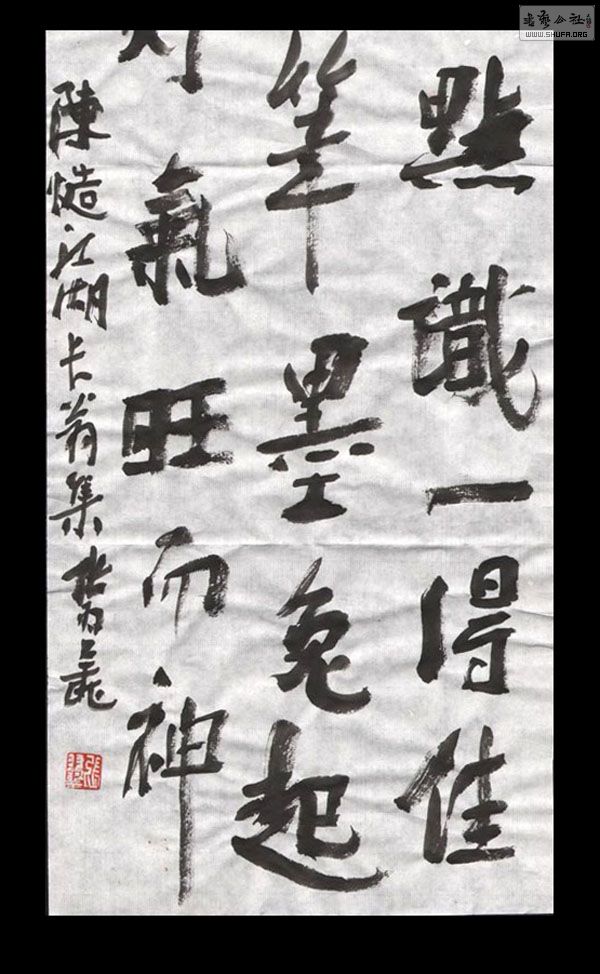 書藝公社
WWW.SHUFA.ORG
點識一得佳
筆墨兔起
氣旺而神
陳江湖长翁集